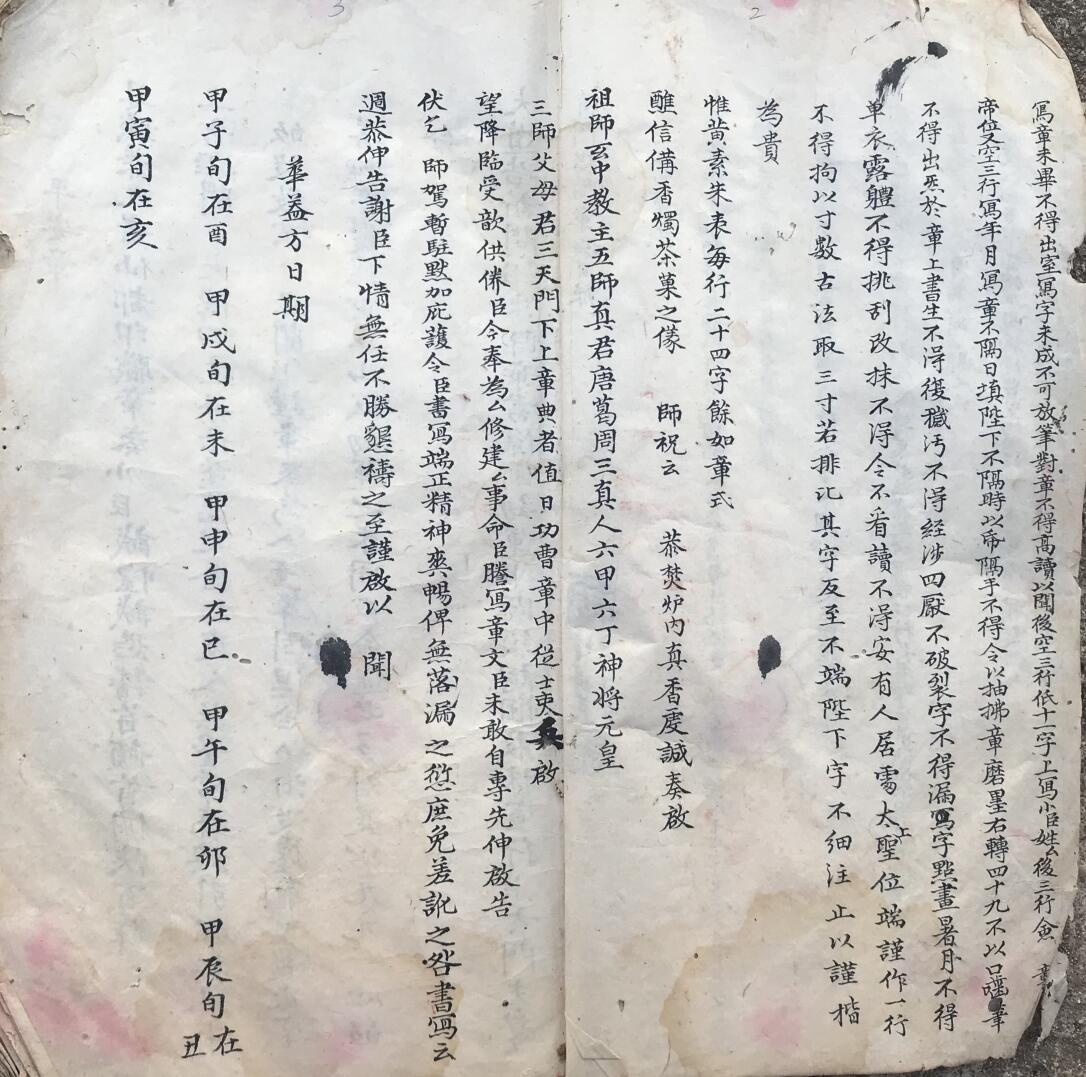 寫章未畢不得出室寫字未成不可放筆對章不得高讀以聞後空三行低十一字上寫小臣姓厶後三行僉 章
帝位又空三行寫年月寫章不隔日填陛下不隔時以帋隔手不得令以抽拂章磨墨右轉四十九不以口吮筆
不得出炁於章上書生不淂後穢污不淂經涉四厭不破裂字不得漏寫字點畫暑月不得
单衣露軆不得挑刮改抹不淂令不看讀不淂安有人居處太上聖位端謹作一行
不得拘以寸數古法取三寸若排比其字反至不端陛下字不細注止以謹楷
為貴
惟黃素朱表每行二十四字餘如章式
醮信備香燭茶菓之儀 師祝云 恭焚炉內真香虔誠奏啟
祖師玄中教主五師真君唐葛周三真人六甲六丁神將元皇
三師父母君三天門下上章典者值日功曹章中従士吏兵啟
望降臨受歆供養臣今奉為厶修建厶事命臣謄寫章文臣未敢自專先伸啟告
伏乞 師駕暫駐默加庇護令臣書寫端正精神爽暢俾無落漏之愆庶免差訛之咎書寫云
週恭伸告謝臣下情無任不勝懇禱之至謹啟以 聞
華蓋方日期
甲子旬在酉 甲戌旬在未 甲申旬在巳 甲午旬在卯 甲辰旬在丑
甲寅旬在亥
3
2